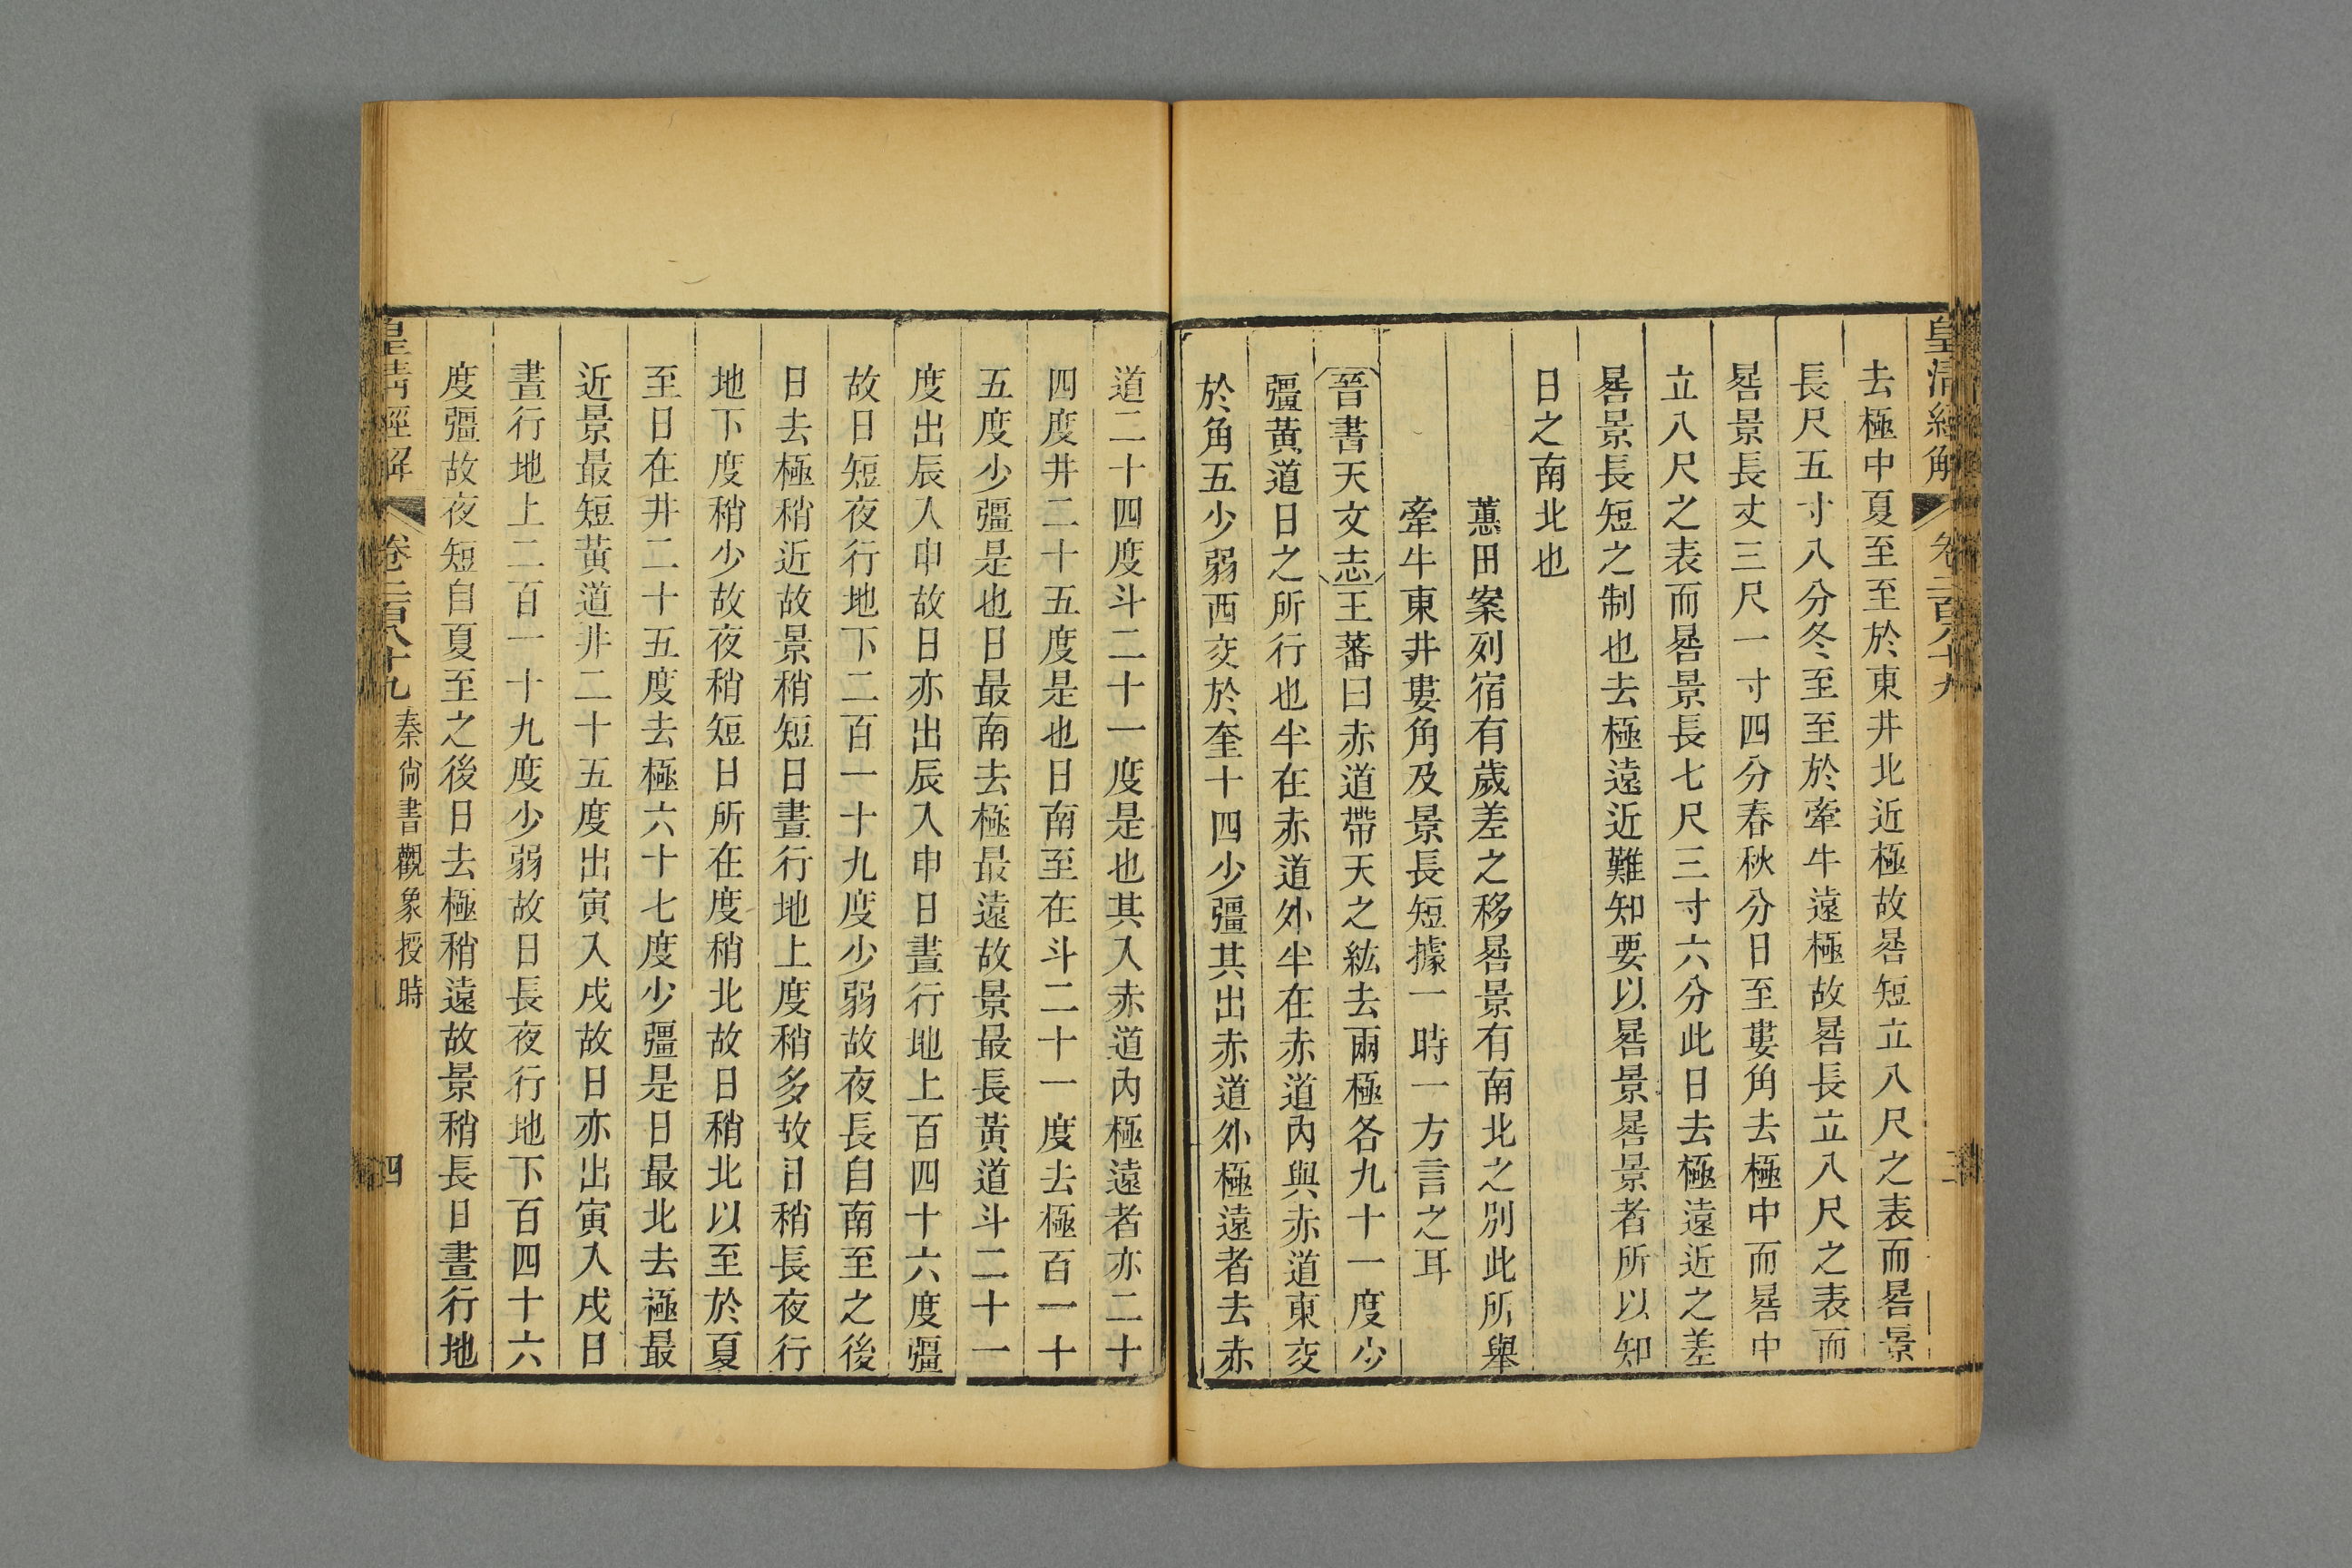 皇清經解 卷二百八十九
去極中夏至至於東井北近極故晷短立八尺之表而晷景
長尺五寸八分冬至至於牽牛遠極故晷長立八尺之表而
晷景長丈三尺一寸四分春秋分日至婁角去極中而晷中
立八尺之表而晷景長七尺三寸六分此日去極遠近之差
晷景長短之制也去極遠近難知要以晷景晷景者所以知
日之南北也
蕙田案列宿有歲差之移晷景有南北之別此所舉
牽牛東井婁角及景長短據一時一方言之耳
晉書天文志王蕃曰赤道帶天之紘去兩極各九十一度少
彊黃道日之所行也半在赤道外半在赤道內與赤道東交
於角五少弱西交於奎十四少彊其出赤道外極遠者去赤
道二十四度斗二十一度是也其入赤道內極遠者亦二十
四度井二十五度是也日南至在斗二十一度去極百一十
五度少彊是也日最南去極最遠故景最長黃道斗二十一
度出辰入申故日亦出辰入申日晝行地上百四十六度彊
故日短夜行地下二百一十九度少弱故夜長自南至之後
日去極稍近故景稍短日晝行地上度稍多故日稍長夜行
地下度稍少故夜稍短日所在度稍北故日稍北以至於夏
至日在井二十五度去極六十七度少彊是日最北去極最
近景最短黃道井二十五度出寅入戌故日亦出寅入戌日
晝行地上二百一十九度少弱故日長夜行地下百四十六
度彊故夜短自夏至之後日去極稍遠故景稍長日晝行地
皇清經解 卷二百八十九 秦尙書觀象授時 四